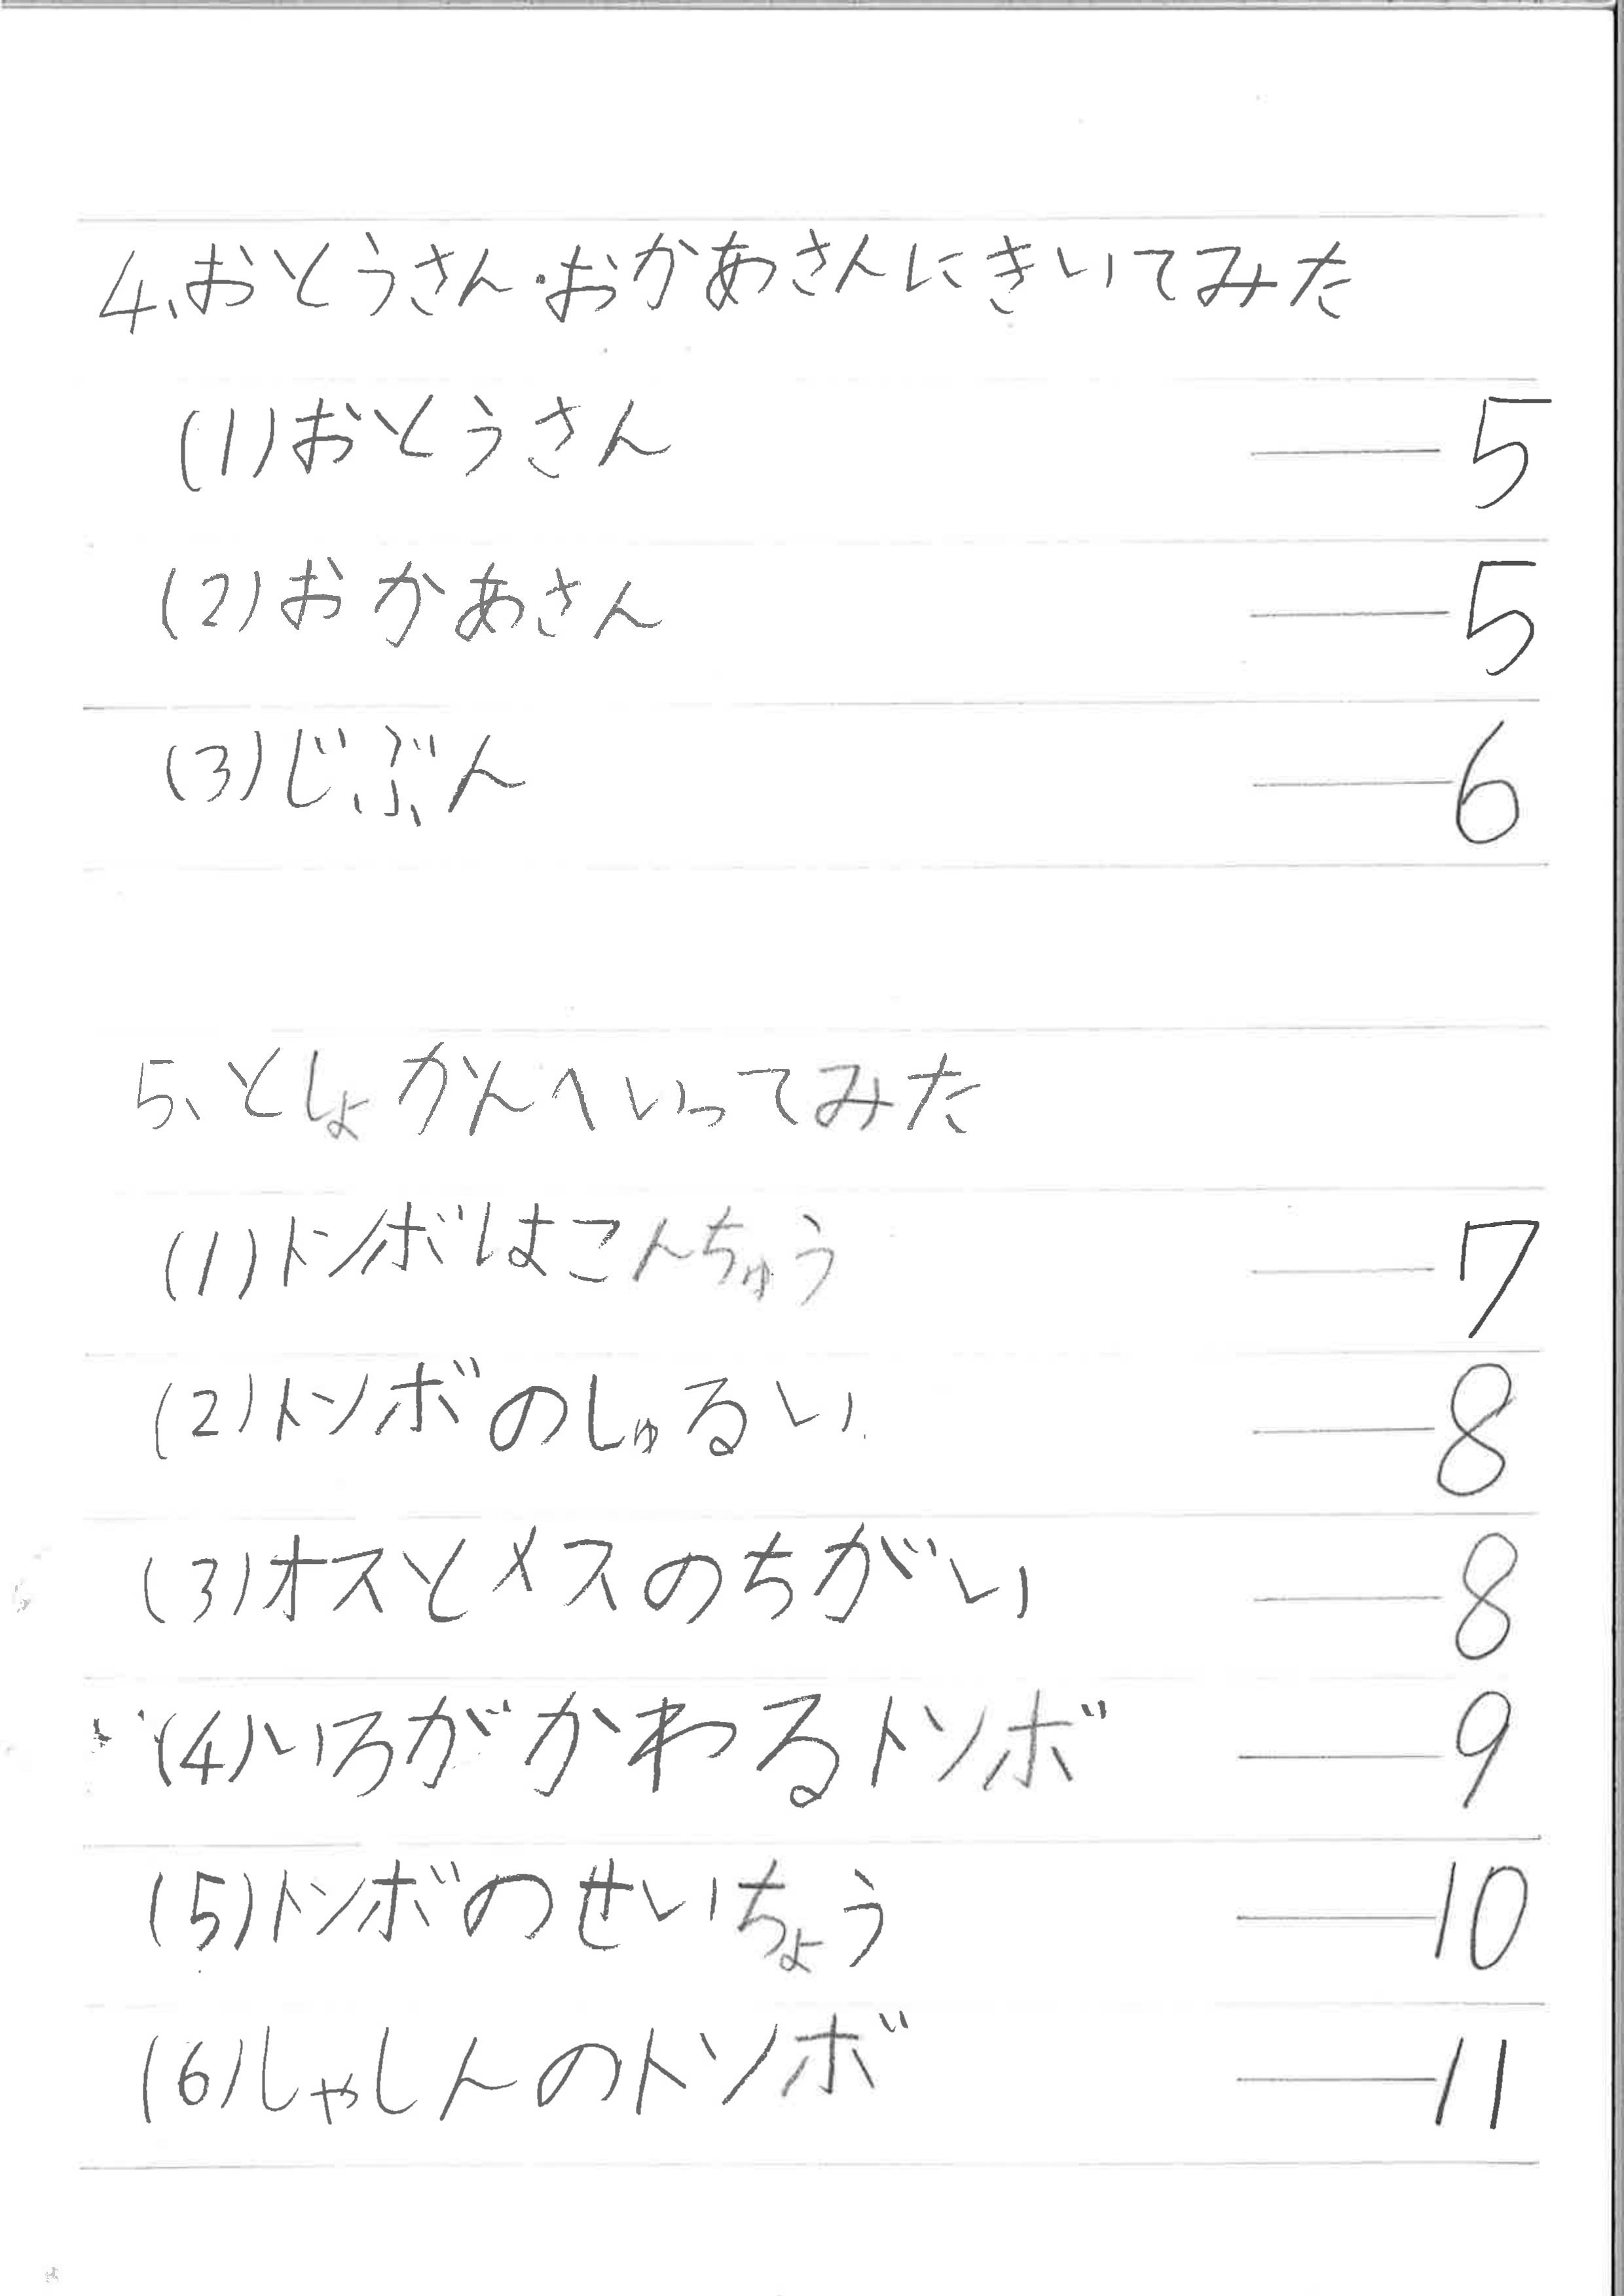 4、おとうさん・おかあさんにきいてみた
(1)おとうさん ── 5
(2)おかあさん ── 5
(3)じぶん ── 6
5、としょかんへいってみた
(1)トンボはこんちゅう ── 7
(2)トンボのしゅるい ── 8
(3)オスとメスのちがい ── 8
(4)いろがかわるトンボ ── 9
(5)トンボのせいちょう ── 10
(6)しゃしんのトンボ ── 11